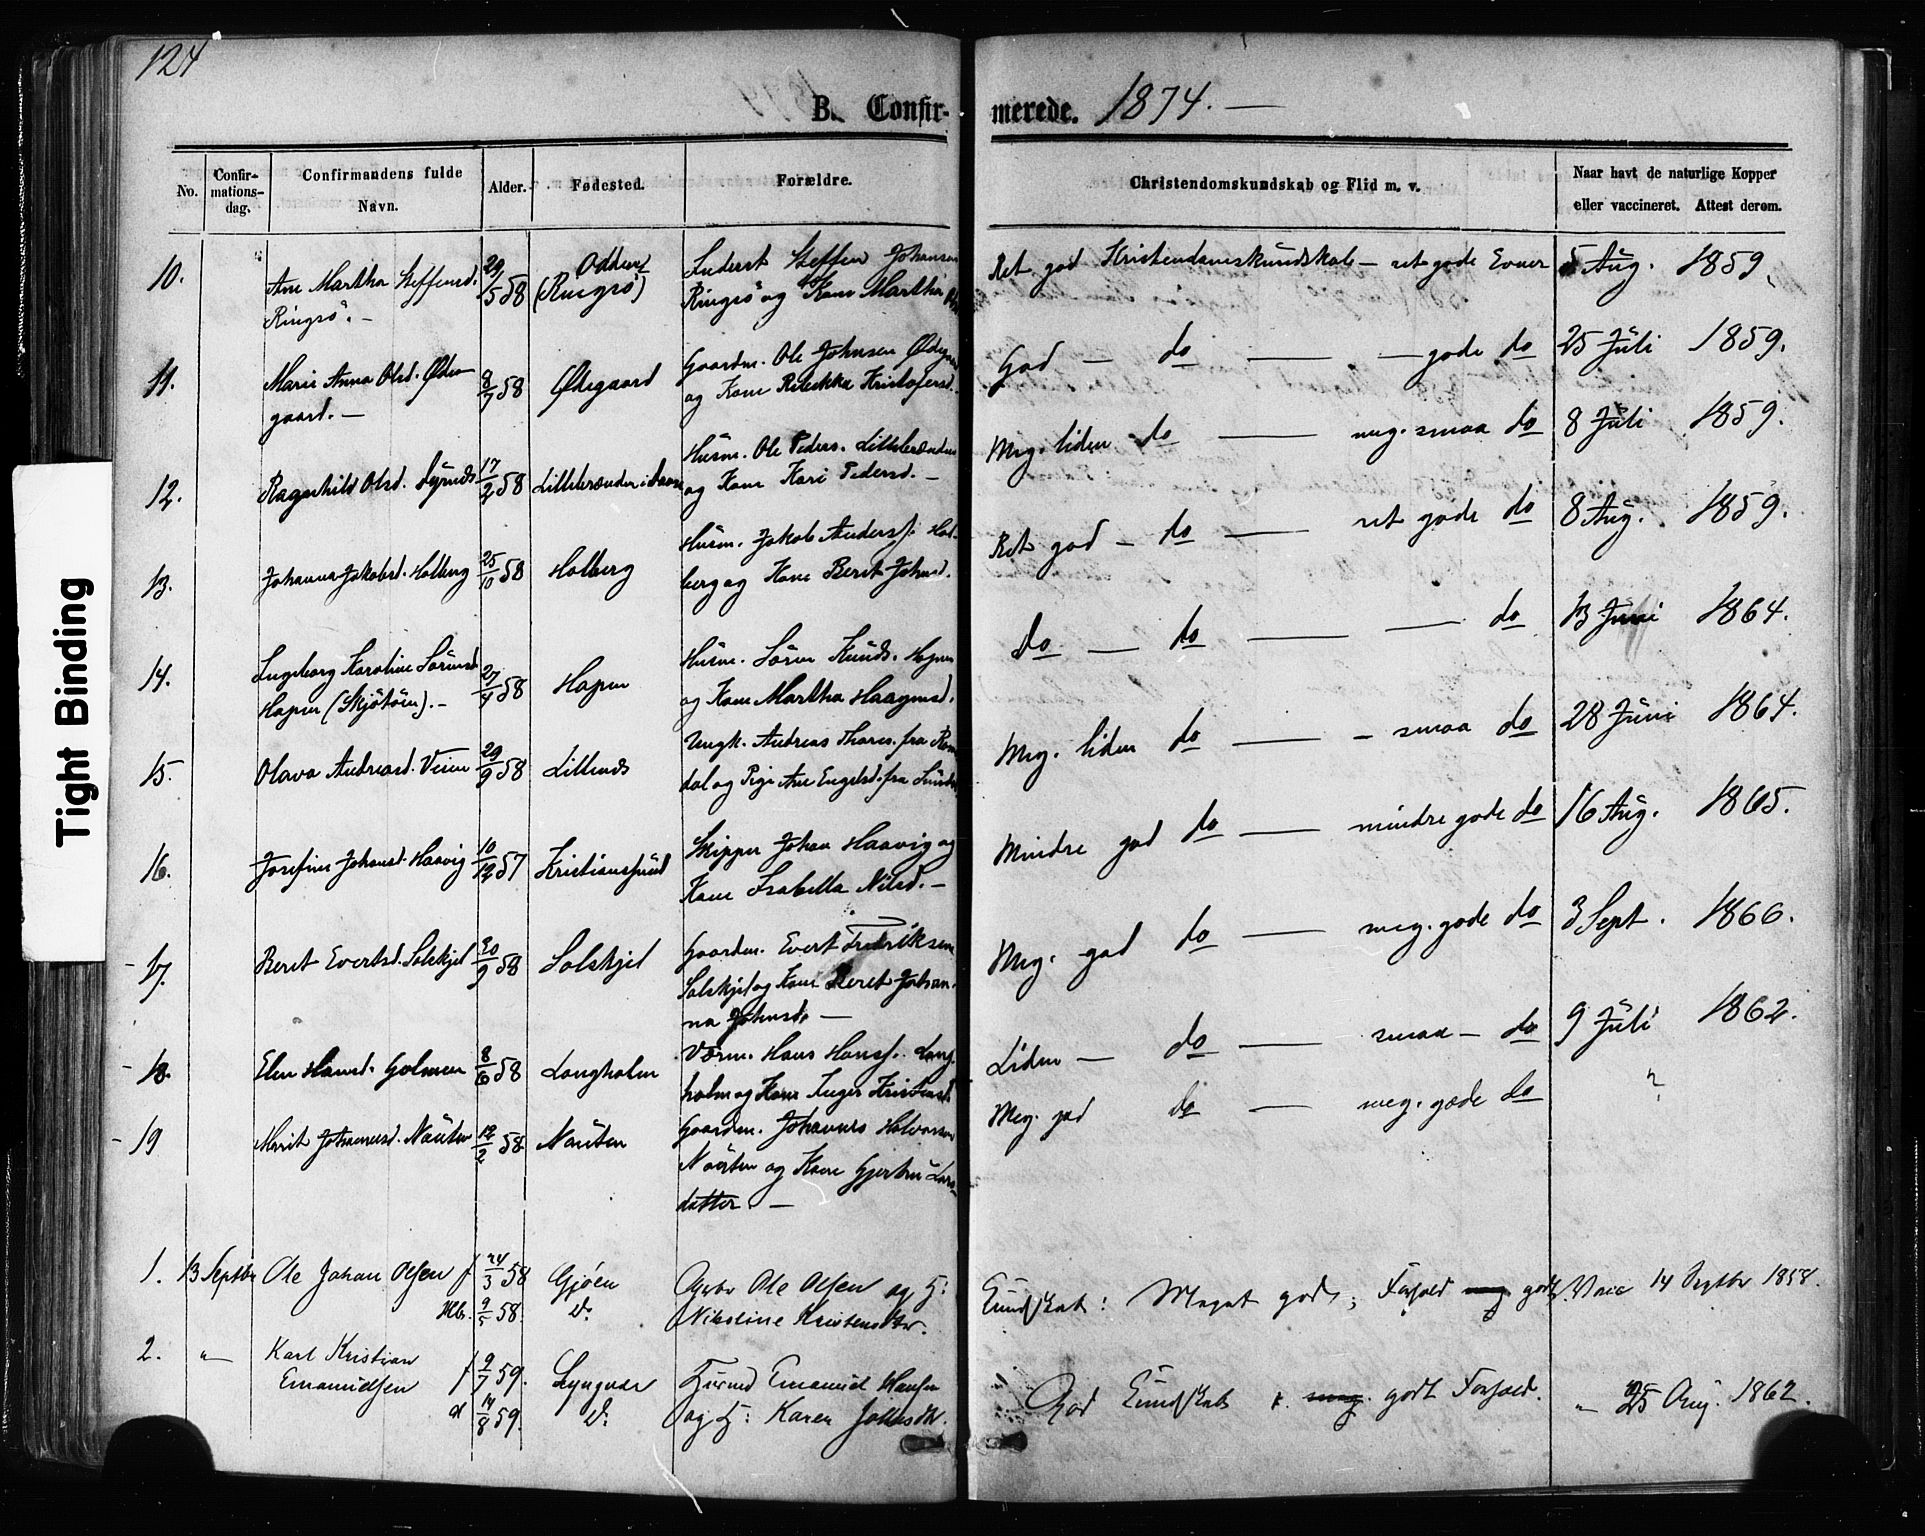 124
B. Confir- merede. 1874. —
No.
Confir-
mations-
dag.
Confirmandens fulde
Navn.
Alder.
Fødested.
Forældre.
Christendomskundskab og Flid m. v.
Naar havt de naturlige Kopper
eller vaccineret. Attest derom.
Tight Binding
10. Ane Martha Steffensd. 29/5 58 Odden Inderst Steffen Johansen
Ringsö. — (Ringsö) Ringsö og Kone Martha
Ret god Kristendomskundskab — ret gode Evner 5 Aug. 1859.
11. Marie Anna Olsd. Øde- 8/7 58 Ødegaard Gaardm. Ole Johnsen
gaard. — og Kone Rebekka Kristofersd.
God — do — — gode do 25 Juli 1859.
12. Ragnhild Olsd. 17/2 58 Husm. Ole Peders.
og Kone Kari Pedersd. —
Meg. liden do — meg. smaa do 8 Juli 1859.
13. Johanna Jakobsd. Holberg 25/10 58 Holberg Husm. Jakob Anders. Hol-
berg og Kone Beret Johnsd.
Ret god — do — ret gode do 8 Aug. 1859.
14. Ingeborg Karoline Sörensd. 27/4 58 Hapnen Husm. Sören Knuds.
(Skjötöen). — og Kone Martha
do — do — — do 13 Juni 1864.
15. Olava Andreasd. Veien 29/9 58 Lillenes Ungk. Andreas Thores. fra
dal og Pige Ane Engelsd. fra
Meg. liden do — — smaa do 28 Juni 1864.
16. Josefine Johansd. Haavig 10/12 57 Kristianssund Skipper Johan Haavig og
Kone Isabella Nilsd. —
Mindre god do — mindre gode do 16 Aug. 1865.
17. Beret Evertsd. Solskjel 30/9 58 Solskjel Gaardm. Evert Fredriksen
Solskjel og Kone Beret Johan-
na Johnsd. —
Meg. god do — meg. gode do 3 Sept. 1866.
18. Elen Hansd. Golmen 8/6 58 Langholm Værm. Hans Hans. Lang-
holm og Kone Inger Kristensd.
Liden — do — smaa — do 9 Juli 1862.
19 Marit Johannesd. Nausten 12/2 58 Nausten Gaardm. Johannes Halvorsen
Nausten og Kone Gjertru Lars-
datter. —
Meg. god do — meg. gode do "
1. 13 Septbr Ole Johan Olsen f 24/3 58 Gjöen Gbr Ole Olsen og H:
Hb. 9/5 58. do. Nikoline Kristensdtr.
Kundskab: Meget god; Forhold meg. godt. Vacc 14 Septbr 1858.
2. " Karl Kristian
Emanuelsen f 9/7 59. Lyngvær Emanuel Hansen
d 14/8 59. do. og H: Karen
God Kundskab & meg. godt Forhold. " 25 Aug. 1862.